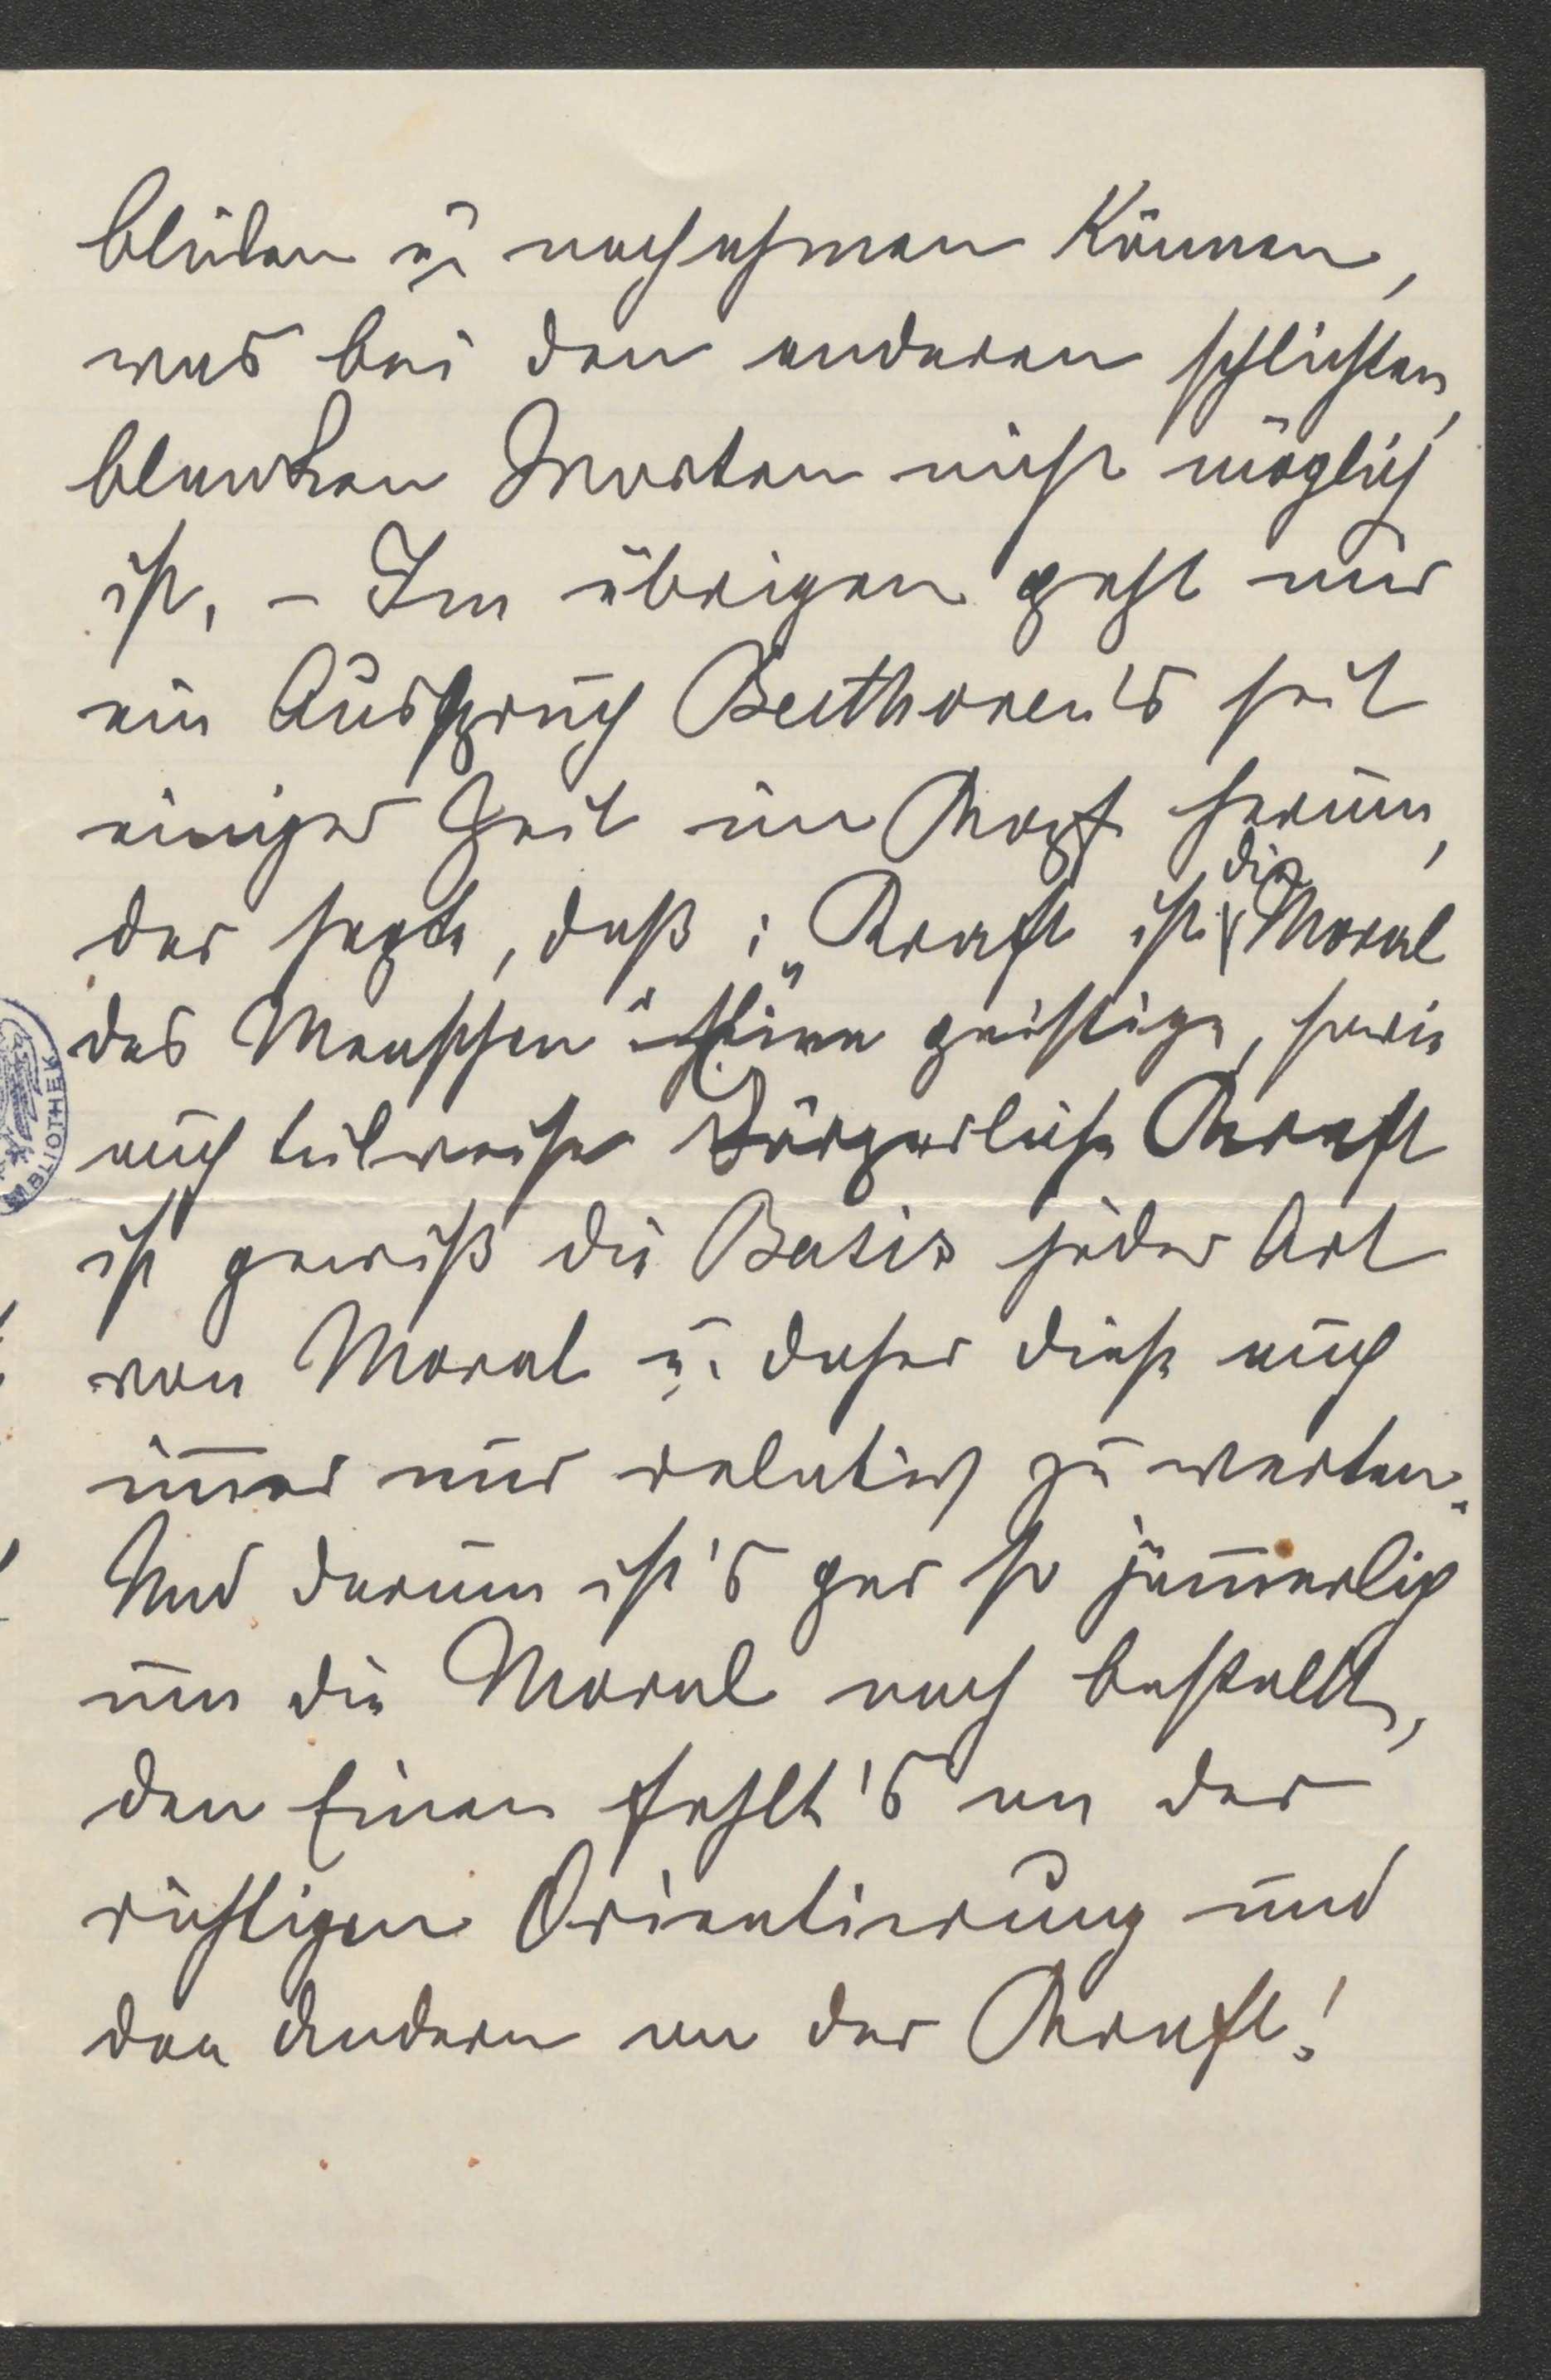 blüten u. nachahmen können,
was bei den anderen schlichten,
blanken Worten nicht möglich
ist, – Im übrigen geht mir
ein Ausspruch Beethoven's seit
einiger Zeit im Kopf herum,
der sagte, daß: „Kraft ist die Moral
des Menschen" Eine geistige, sowie
auch teilweise körperliche Kraft
ist gewiß die Basis jeder Art
von Moral u. daher diese auch
im̅er nur relativ zu werten.
Und darum ist's gar so jäm̅erlich
um die Moral auch bestellt,
den Einen fehlt's an der
richtigen Orientierung und
den Andern an der Kraft!
BIBLIOTHEK